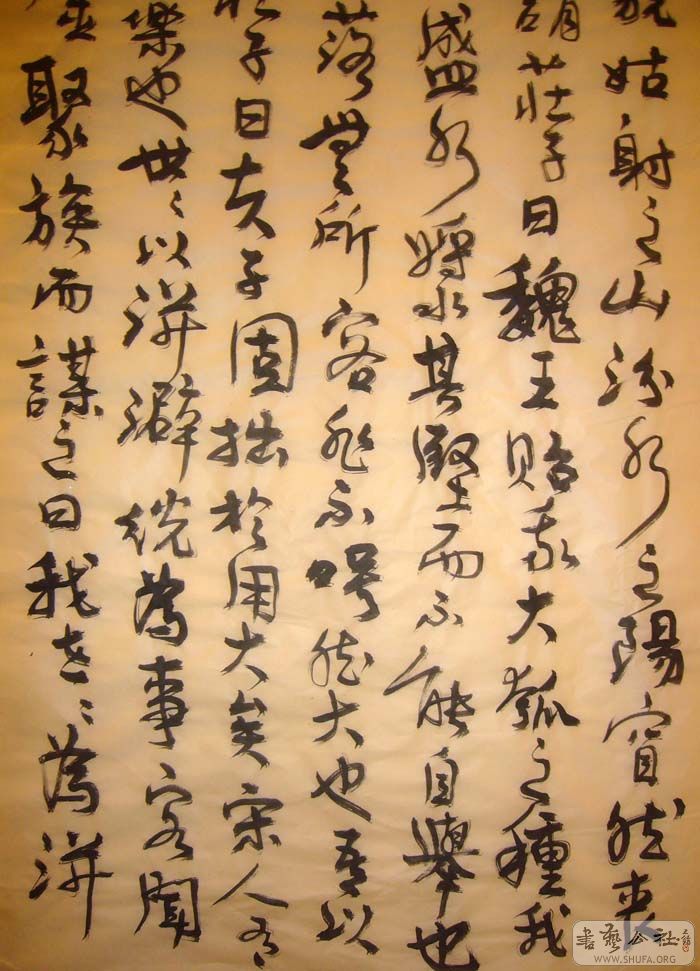 藐姑射之山汾水之陽窅然喪
謂莊子曰魏王貽我大瓠之種我
盛水漿其堅而不能自舉也
落無所容非不呺然大也吾以
莊子曰夫子固拙於用大矣宋人有
樂也世〻以洴澼絖為事客聞
聚族而謀之曰我世〻為洴
書藝公社
WWW.SHUFA.ORG